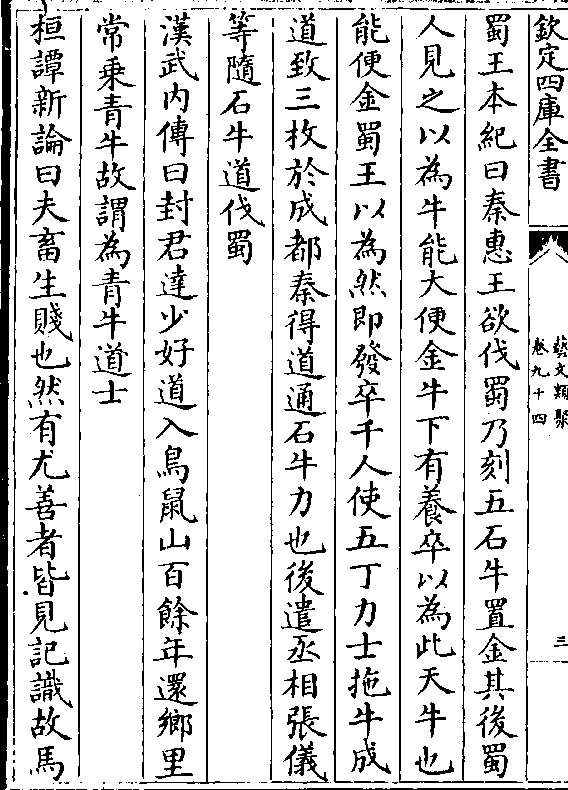 欽定四庫全書
藝文類聚
卷九十四
三
蜀王本紀曰秦惠王欲伐蜀乃刻五石牛置金其後蜀
人見之以為牛能大便金牛下有養卒以為此天牛也
能便金蜀王以為然即發卒千人使五丁力士拖牛成
道致三枚於成都秦得道通石牛力也後遣丞相張儀
等隨石牛道伐蜀
漢武内傳曰封君達少好道入鳥鼠山百餘年還鄉里
常乘青牛故謂為青牛道士
桓譚新論曰夫畜生賤也然有尤善者皆見記識故馬